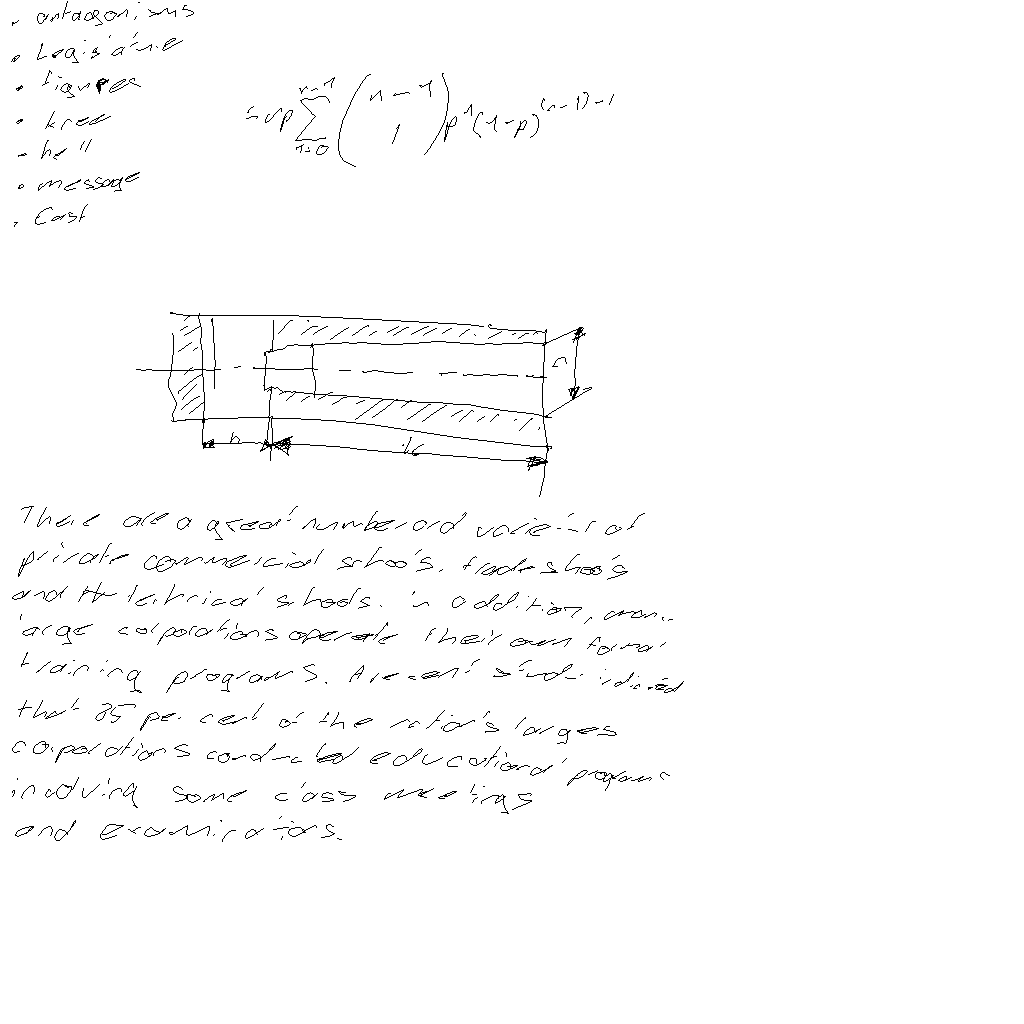 • antagonisms
• Legislature
• figures
• knee
• hell
• message
• Cast
n-1
∑ (n-1 1) p^1 (1-p)^{(n-1)-1}
1=0
h
There are a great number and varieties of
private commercial schools, trade schools
and technical schools. In addition, many
large corporations operate their own formal
training programs. A recent study indicated
that 85 per cent of the nation's largest
corporations conducted educational programs
involving some class meetings
and examinations.